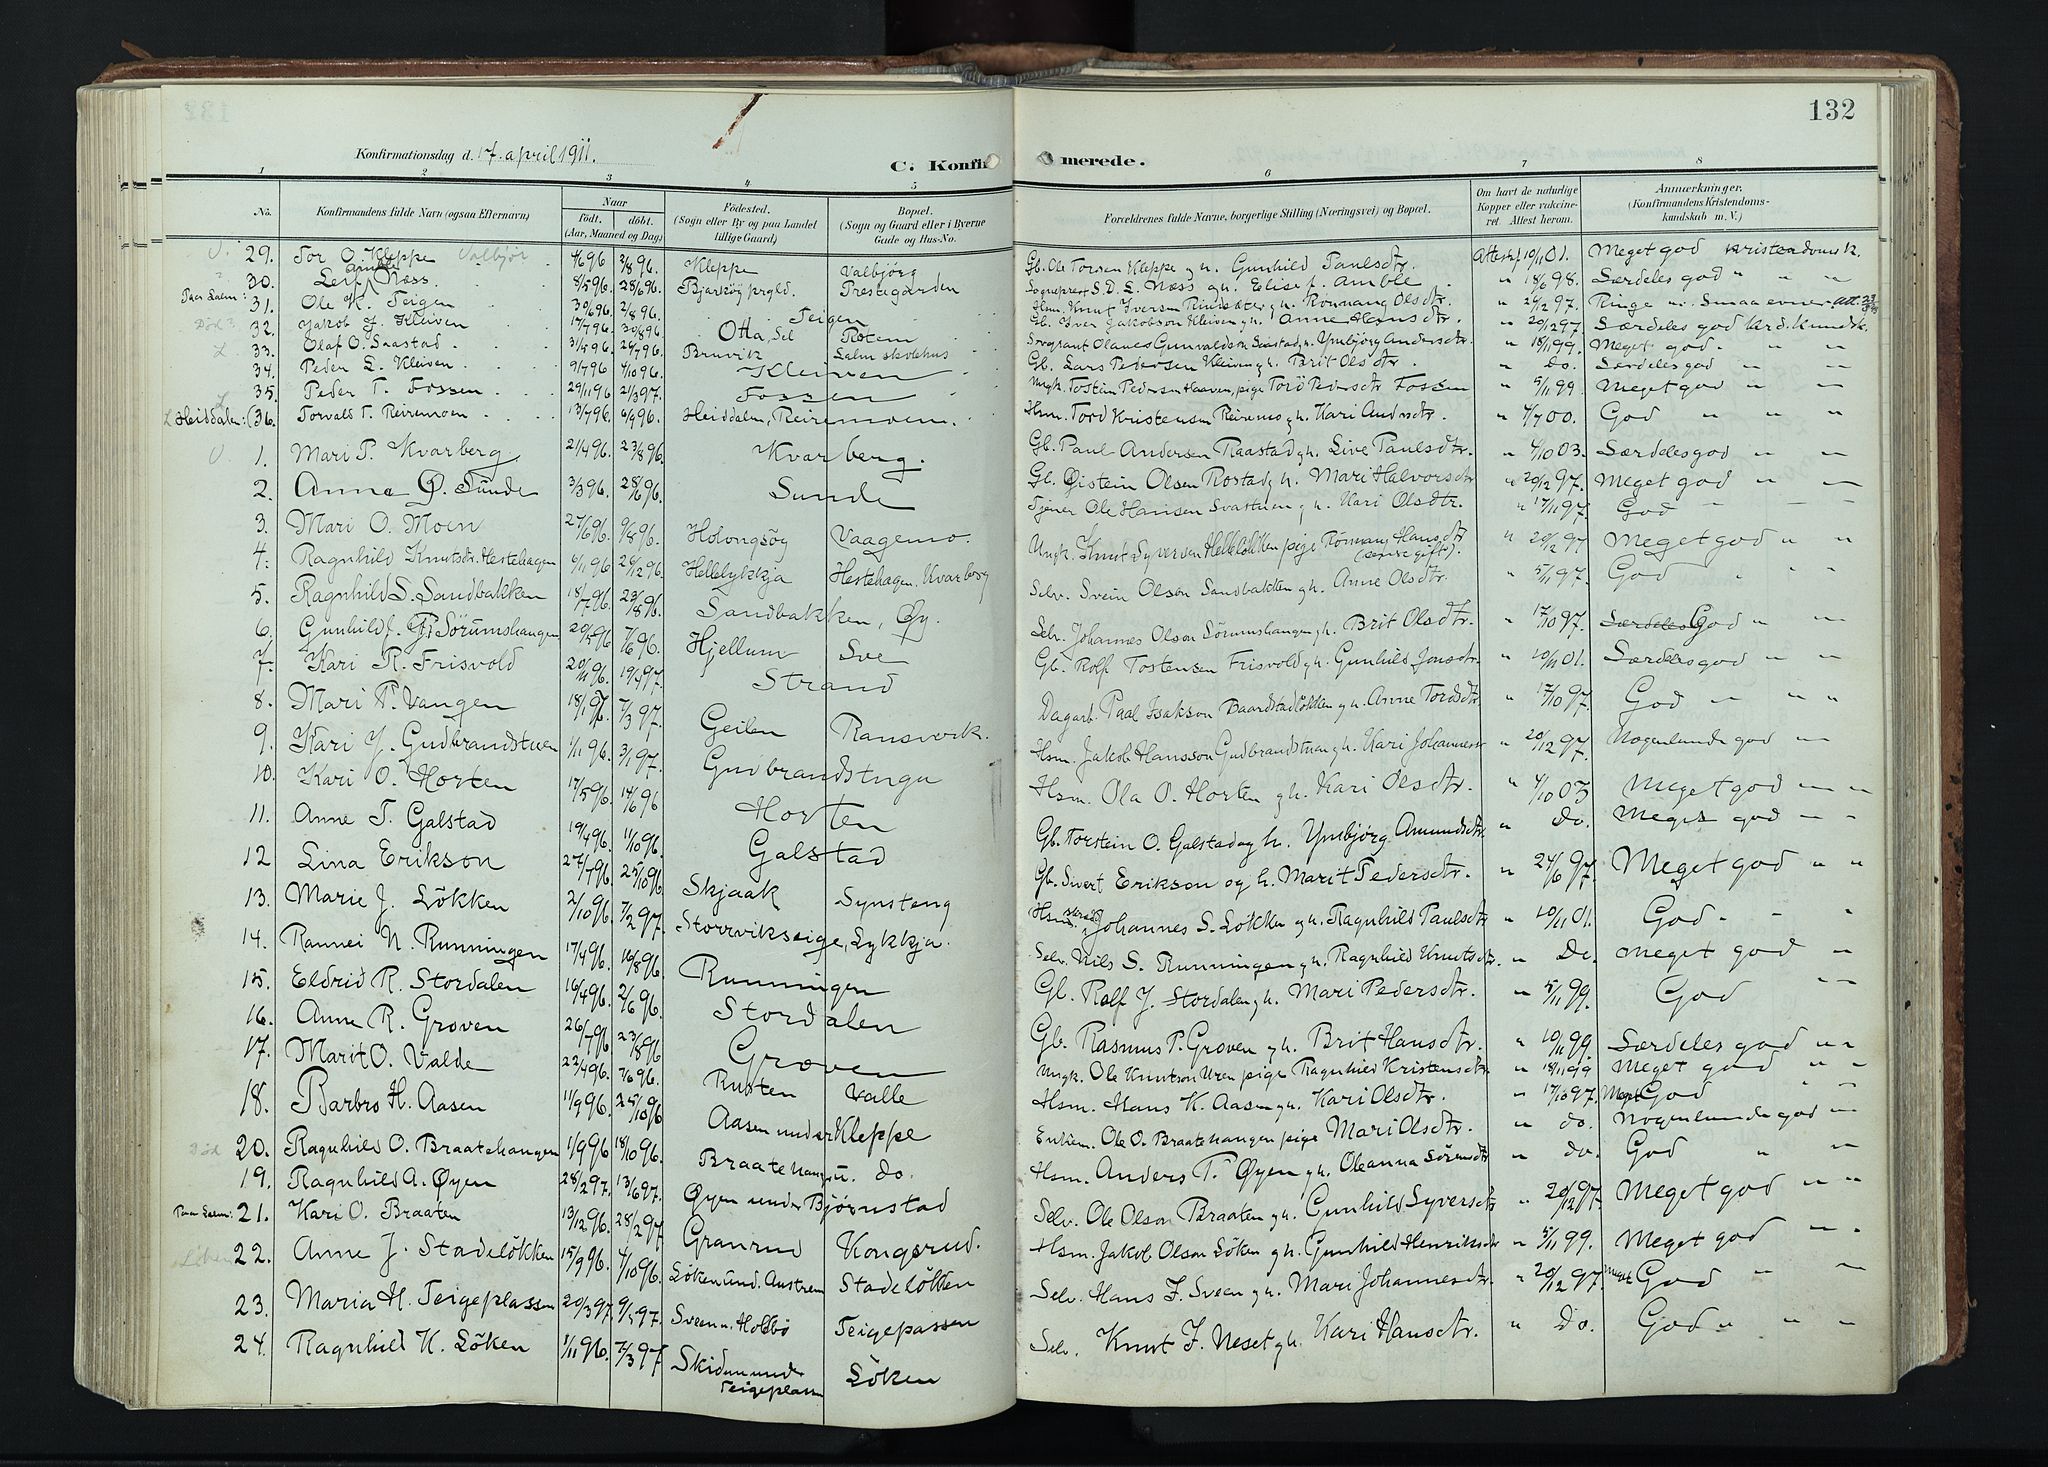 132
Konfirmationsdag d. 17. april 1911.
C. Konfirmerede.
1 2 3 4 5 6 7 8
No. Konfirmandens fulde Navn (ogsaa Efternavn) Naar født, døbt. (Aar, Maaned og Dag) Fødested. (Sogn eller By og paa Landet tillige Gaard) Bopæl. (Sogn og Gaard eller i Byerne Gade og Hus-No. Forældrenes fulde Navne, borgerlige Stilling (Næringsvei) og Bopæl. Om havt de naturlige Kopper eller vaccineret Attest herom. Anmærkninger. (Konfirmandens Kristendomskundskab m. V.)
29. Tor O. Kleppe Valbjør 4/6 96 2/8 96. Kleppe Valbjørg Gb. Ole Torsen Kleppe g h. Gunhild Paulsdtr. 10/1 01. Meget god Kristendoms k.
30. Næss 8/5 96. 28/6 96. Bjarkøy prgld. Prestegården Sogneprest S. D. L. Næss og h. Elise f. Amble " 18/6 98. Særdeles god " " "
31. Ole K. Teigen 30/6 96. 2/8 96. Teigen Hsm. Knut Iversen g h. Rønnaug Olsdtr. Ringe Smaa evner
32. Jakob I. Kleiven 17/7 96. 30/8 96. Otta, Sel Rotem Gb. Iver Jakobson Kleiven g h. Anne Hansdtr. " 20/12 97. Særdeles god Krd. kundsk.
33. Olaf O. Saastad 31/5 96. 26/7 96. Bruvik Lalm skolehus Olaves Gunvaldsen Saastad g h. Ymbjørg Andersdtr. " 18/11 99. Meget god " " "
34. Peder L. Kleiven 9/7 96 4/10 96. Kleiven Gb. Lars Pedersen Kleiven g h. Brit Olsdtr. " do. Særdeles god " "
35. Peder T. Fossen 29/11 96 21/3 97. Fossen Ungk. Tostein Pedersen Haaven, pige Torø Pedersdtr. Fossen " 5/11 99. Meget god " "
Heiddalen: (36. Torvald T. Reiremoen 13/7 96. 6/9 96. Heiddalen, Reiremoen. Hsm. Tord Kristensen Reiremo g h. Kari Andrsdtr. " 4/7 00. God " " "
1. Mari P. Kvarberg 21/4 96. 23/8 96. Kvarberg. Gb. Paul Andersen Raastad g h. Live Paulsdtr. " 4/10 03. Særdeles god " "
2. Anne Ø. Sunde 3/3 96. 28/6 96. Sunde Gb. Øistein Olsen Rostad g h. Mari Halvorsdtr " 20/12 97. Meget god " "
3. Mari O. Moen 27/6 96. 9/8 96. Holongsøy Vaagemo. Tjener Ole Hansen Svastuen g h. Kari Olsdtr. " 17/11 97. God " " "
4. Ragnhild Knutsdr. Hestehagen 6/11 96 26/12 96. Hellelykkja Hestehagen, Kvarberg Ungk. Knut Syversen Helleløkken pige Rønnaug Hansdtr (senere gift). " 20/12 97 Meget god " "
5. Ragnhild S. Sandbakken 18/7 96. 23/8 96. Sandbakken, Øy. Selv. Svein Olson Sandbakken g h. Anne Olsdtr. " 5/11 97. God " " "
6. Gunhild J. Sørumshangen 20/5 96 7/6 96. Hjellum Sve Selv. Johannes Olson Sørumshangen g h. Brit Olsdtr. " 17/10 97. Særdeles God " "
7. Kari R. Frisvold 20/11 96. 19/4 97. Strand Gb. Rolf Tostensen Frisvold g h. Gunhild Jonsdtr. " 10/1 01. Særdeles god " "
8. Mari P. Vangen 18/1 97. 7/3 97. Geilen Ransverk. Dagarb. Paal Isakson Baardstadløkken g h. Anne Tordsdtr " 17/10 97. God " " "
9. Kari J. Gudbrandstuen 1/11 96. 3/1 97. Gudbrandstugu Hsm. Jakob Hansson Gudbrandstuen g h. Kari Johannesdtr " 20/12 97. Nogenlunde god "
10. Kari O. Horten 17/5 96. 14/6 96 Horten Hsm. Ola O. Horten g h. Kari Olsdtr. " 4/10 03 Meget god " "
11. Anne T. Galstad 19/4 96. 11/10 96. Galstad Gb. Torstein O. Galstad og h. Ymbjørg Amundsdtr " Do. Meget god " "
12 Lina Erikson 27/7 96. 25/10 96 Skjaak Synsteng Gb. Sivert Erikson og h. Marit Pedersdtr. " 24/6 97. Meget god " "
13. Marie J. Løkken 2/10 96. 7/2 97. Storrvikseige, Lykkja. Hsm. Johannes S. Løkken g h. Ragnhild Paulsdtr " 10/11 01. God " " "
14. Rannei N. Runningen 17/4 96. 16/8 96. Runningen Selv. Nils S. Runningen g h. Ragnhild Knutsdtr. " Do. Meget god "
15. Eldrid R. Stordalen 16/4 96. 2/6 96. Stordalen Gb. Rolf J. Stordalen g h. Mari Pedersdtr. " 5/11 99. God " "
16. Anne R. Groven 26/7 96. 23/8 96 Groven Gb. Rasmus P. Groven g h. Brit Hansdtr. " 10/11 99. Særdeles god " "
17. Marit O. Valde 22/4 96. 7/6 96. Rusten Valle Ungk. Ole Knutson Uren pige Ragnhild Kristensdtr " 18/11 99 Meget god " "
18. Barbro H. Aasen 11/9 96. 25/10 96 Aasen under Kleppe Hsm. Hans K. Aasen g h. Kari Olsdtr. " 17/10 97. Meget God " "
20. Ragnhild O. Braatehangen 1/9 96 18/10 96. Braatehang u. do. Enkem. Ole O. Braatehangen pige Mari Olsdtr. " do. Nogenlunde god "
19. Ragnhild A. Øyen 28/2 97. 13/6 97. Øyen under Bjørnstad Hsm. Anders P. Øyen g h. Oleanna Sørensdtr " do. God " "
21. Kari O. Braaten 13/12 96. 28/2 97 Granrud Kongsrud. Selv. Ole Olson Braaten g h. Gunhild Syversdtr " 20/12 97. Meget god " "
22. Anne J. Stadeløkken 15/9 96. 4/10 96. Løken und. Austrem Stadeløkken Hsm. Jakob Olson Løken g h. Gunhild Henriksdtr " 5/11 99. Meget god " "
23. Maria H. Teigeplassen 20/3 97. 9/5 97. Sveen u. Holbø Teigepassen Selv. Hans F. Sveen g h. Mari Johannesdtr. " 20/12 97. meget God " "
24. Ragnhild K. Løken 1/11 96. 7/3 97. Skiden under Teigeplassen Løken Selv. Knut F. Neset g h. Kari Hansdtr. " Do. God " " "